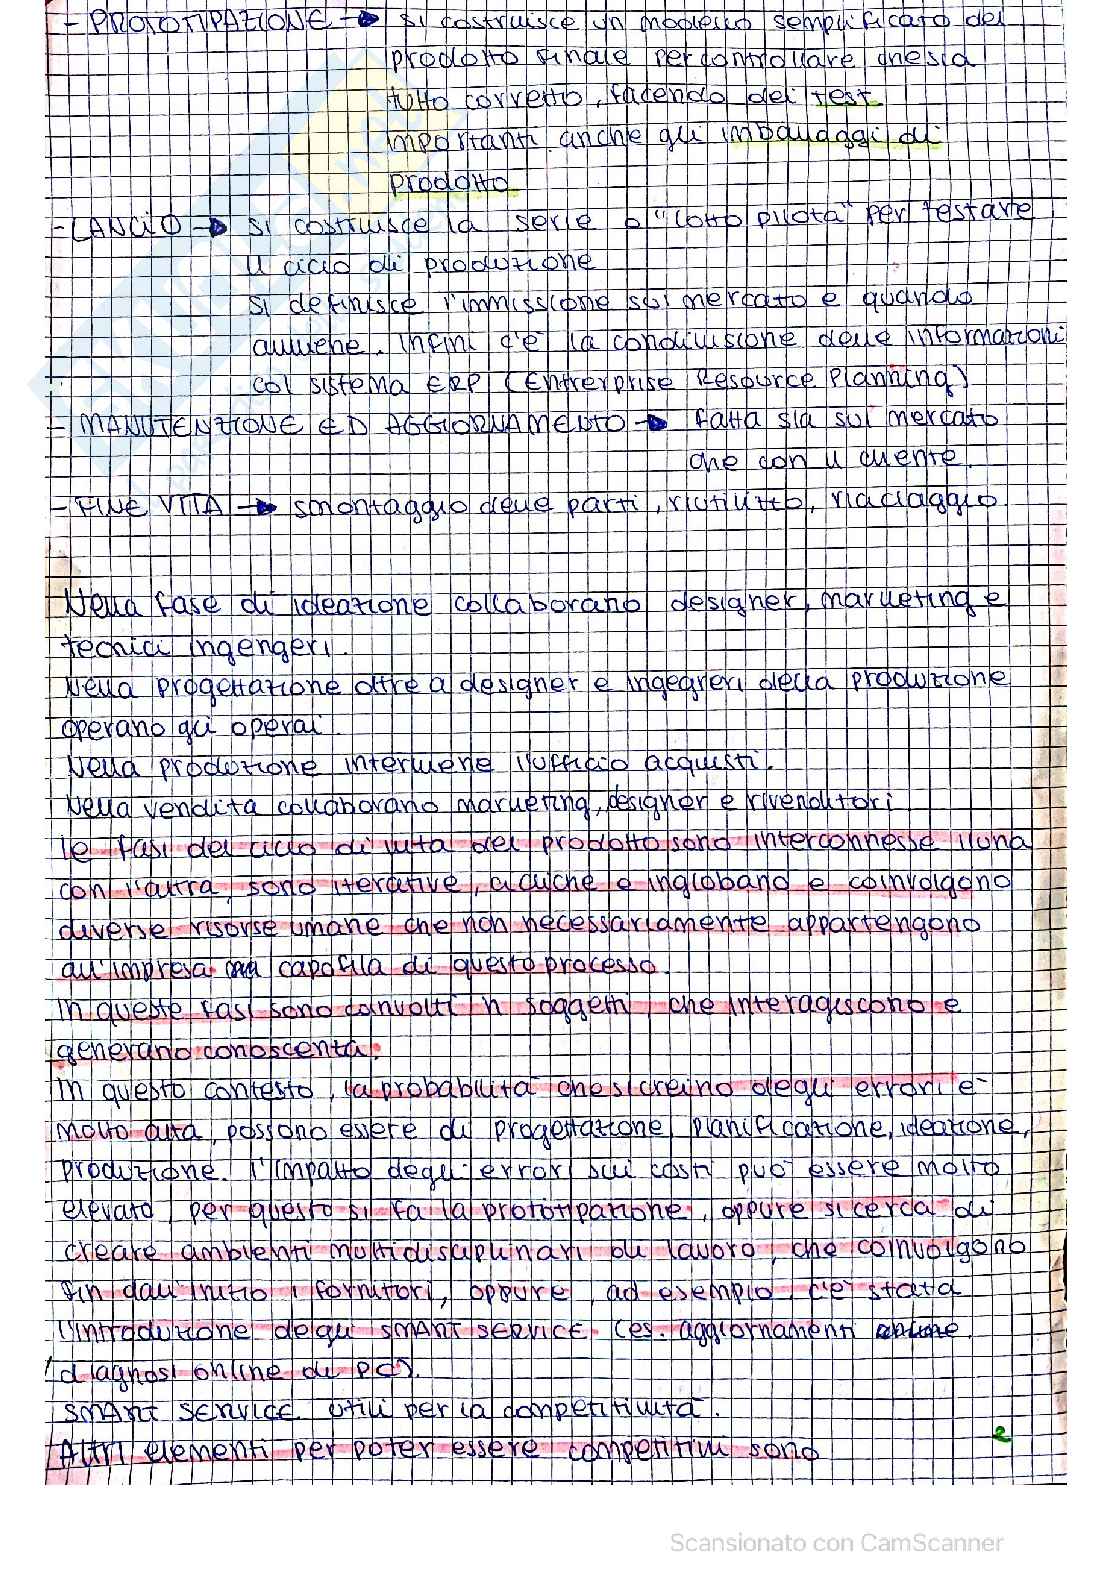 - PROTOTIPAZIONE → si costruisce un modello semplificato del
prodotto finale per controllare che sia
tutto corretto, facendo dei test.
importanti anche gli imballaggi di
prodotto
- LANCIO → si costruisce la serie o "lotto pilota" per testare
il ciclo di produzione
si definisce l'immissione sul mercato e quando
avviene. Infini c'è la condivisione delle informazioni
col sistema ERP (Entrerprise Resource Planning)
- MANUTENZIONE ED AGGIORNAMENTO → fatta sia sul mercato
che con il cliente.
- FINE VITA → smontaggio delle parti, riutilizzo, riciclaggio.
Nella fase di ideazione collaborano designer, marketing e
tecnici ingengeri.
Nella progettazione oltre a designer e ingegneri della produzione
operano gli operai
Nella produzione interviene l'ufficio acquisti.
Nella vendita collaborano marketing, designer e rivenditori
le fasi del ciclo di vita del prodotto sono interconnesse l'una
con l'altra, sono iterative, cicliche e inglobano e coinvolgono
diverse risorse umane che non necessariamente appartengono
all'impresa capofila di questo processo.
In queste fasi sono coinvolti n soggetti che interagiscono e
generano conoscenza.
In questo contesto, la probabilità che si creino degli errori è
molto alta, possono essere di progettazione, pianificazione, ideazione,
produzione. l'impatto degli errori sui costi può essere molto
elevato, per questo si fa la prototipazione, oppure si cerca di
creare ambienti multidisciplinari di lavoro, che coinvolgono
fin dall'inizio i fornitori, oppure, ad esempio c'è stata
l'introduzione degli SMART SERVICE (es. aggiornamenti online
diagnosi online di PC).
SMART SERVICE utili per la competitività.
Altri elementi per poter essere competitivi sono
2
Scansionato con CamScanner